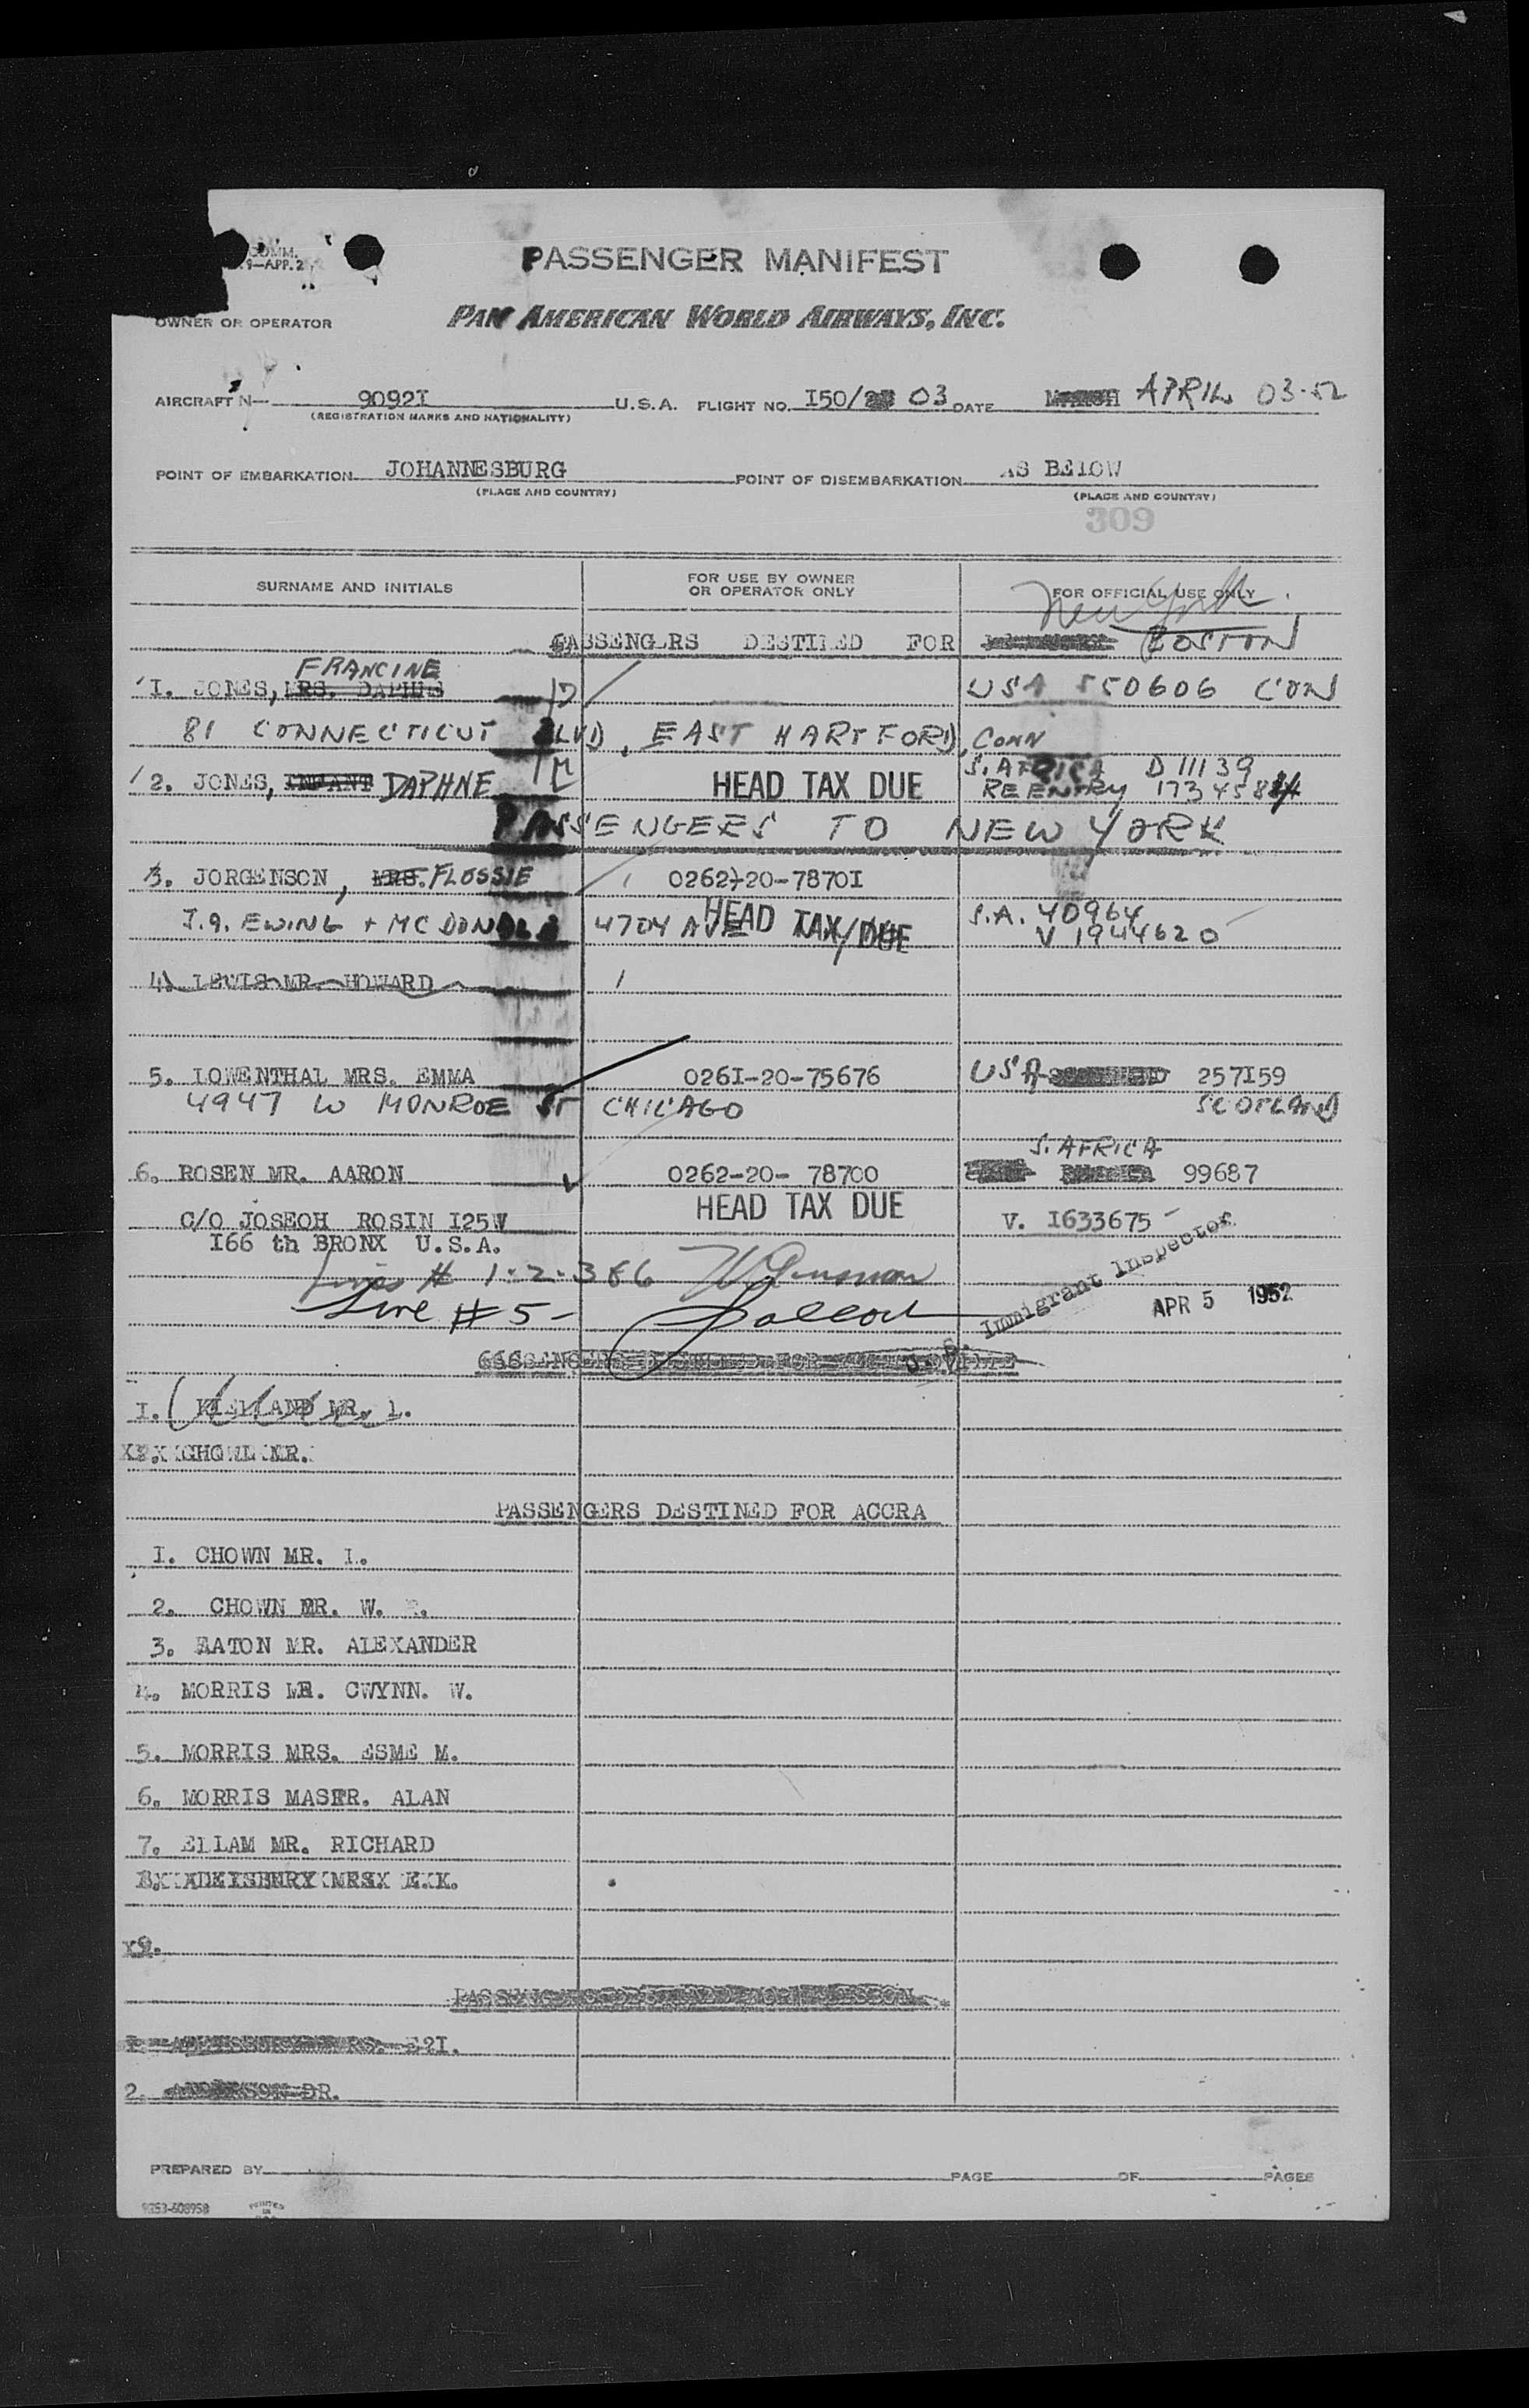 COMM.
9—APR. 2
PASSENGER MANIFEST
OWNER OR OPERATOR PAN AMERICAN WORLD AIRWAYS, INC.
AIRCRAFT N— 9092I U.S.A. FLIGHT NO. I50/ 03 DATE MARCH APRIL 03-52
(REGISTRATION MARKS AND NATIONALITY)
POINT OF EMBARKATION JOHANNESBURG POINT OF DISEMBARKATION AS BElOW
(PLACE AND COUNTRY) (PLACE AND COUNTRY)
309
SURNAME AND INITIALS FOR USE BY OWNER OR OPERATOR ONLY FOR OFFICIAL USE ONLY
New York
PASSENGERS DESTINED FOR BOSTON
FRANCINE
I. JONES, MRS. DAPHNE USA 550606 CON
81 CONNECTICUT BLVD, EAST HARTFORD, CONN
2. JONES, INFANT DAPHNE HEAD TAX DUE S. AFRICA D 11139
REENTRY 1734584
PASSENGERS TO NEW YORK
3. JORGENSON, MRS. FLOSSIE 0262-20-7870I
EWING + MC DONALD 4704 AVE HEAD TAX DUE S.A. 40964
V 1944620
4. LEWIS MR. HOWARD
5. lOWENTHAL MRS. EMMA 026I-20-75676 USA 257I59
4947 W MONROE ST CHICAGO SCOTLAND
S. AFRICA
6. ROSEN MR. AARON 0262-20- 78700 99687
HEAD TAX DUE
C/O JOSEOH ROSIN I25W V. I633675
I66 th BRONX U.S.A.
Lines # 1-2-3&6
Line # 5-
U.S. Immigrant Inspector
APR 5 1952
I. KIELLAND MR. l.
PASSENGERS DESTINED FOR ACCRA
I. CHOWN MR. I.
2. CHOWN MR. W.
3. EATON MR. AlEXANDER
4. MORRIS MR. GWYNN. W.
5. MORRIS MRS. ESME M.
6. MORRIS MASTR. ALAN
7. EllAM MR. RICHARD
9.
2. DR.
PREPARED BY PAGE OF PAGES
9353-608958 PRINTED IN